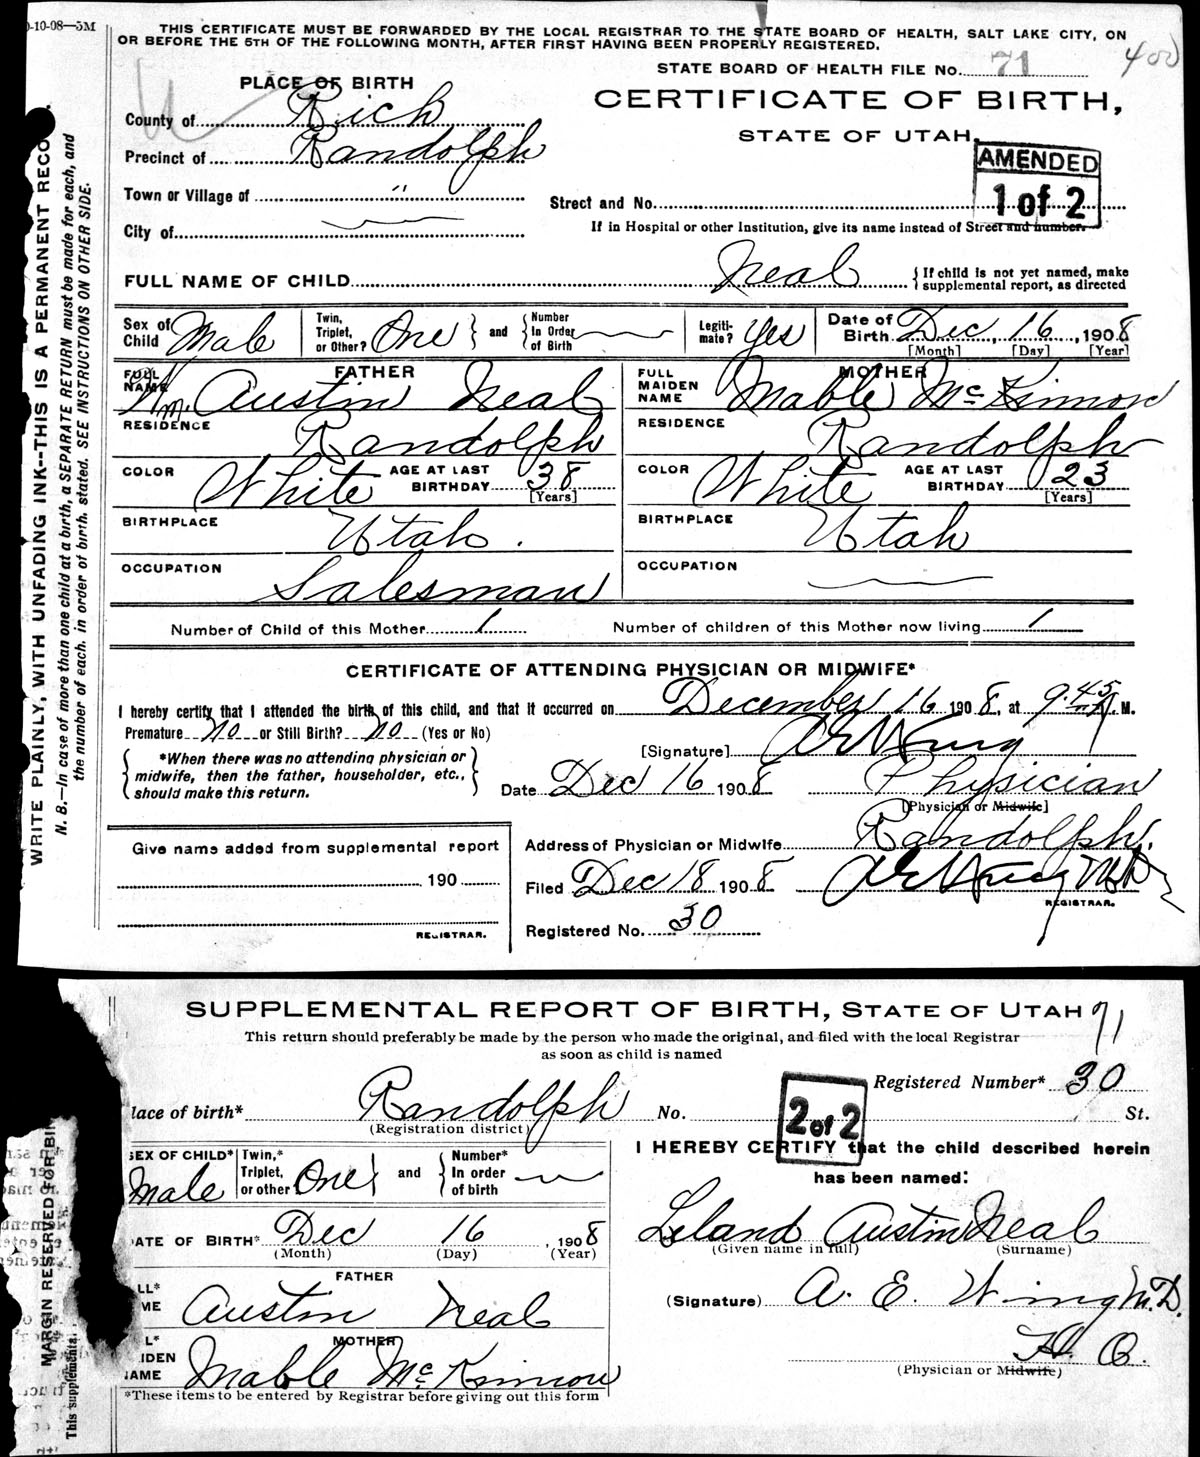 0-10-08—5M
THIS CERTIFICATE MUST BE FORWARDED BY THE LOCAL REGISTRAR TO THE STATE BOARD OF HEALTH, SALT LAKE CITY, ON
OR BEFORE THE 5TH OF THE FOLLOWING MONTH, AFTER FIRST HAVING BEEN PROPERLY REGISTERED.
STATE BOARD OF HEALTH FILE No. 71
400
PLACE OF BIRTH
CERTIFICATE OF BIRTH,
STATE OF UTAH.
County of Rich
Precinct of Randolph
AMENDED
1 of 2
Town or Village of "
Street and No.
City of
If in Hospital or other Institution, give its name instead of Street and number.
FULL NAME OF CHILD Neal { If child is not yet named, make
supplemental report, as directed
Sex of Child Male Twin, Triplet, or Other? One } and { Number In Order of Birth Legiti-mate? Yes Date of Birth Dec 16, 1908
[Month] [Day] [Year]
FATHER
FULL NAME Wm. Austin Neal
RESIDENCE Randolph
COLOR White AGE AT LAST BIRTHDAY 38 [Years]
BIRTHPLACE Utah.
OCCUPATION Salesman
MOTHER
FULL MAIDEN NAME Mable McKinnon
RESIDENCE Randolph
COLOR White AGE AT LAST BIRTHDAY 23 [Years]
BIRTHPLACE Utah
OCCUPATION
Number of Child of this Mother 1 Number of children of this Mother now living 1
CERTIFICATE OF ATTENDING PHYSICIAN OR MIDWIFE*
I hereby certify that I attended the birth of this child, and that it occurred on December 16 1908, at 9.45 M.
Premature No or Still Birth? No (Yes or No)
[Signature]
{ *When there was no attending physician or
midwife, then the father, householder, etc.,
should make this return. }
Date Dec 16 1908 Physician
[Physician or Midwife]
Address of Physician or Midwife Randolph.
Give name added from supplemental report
190
REGISTRAR.
Filed Dec 18 1908
REGISTRAR.
Registered No. 30
WRITE PLAINLY, WITH UNFADING INK--THIS IS A PERMANENT RECO
N. B.—In case of more than one child at a birth, a SEPARATE RETURN must be made for each, and
the number of each, in order of birth, stated. SEE INSTRUCTIONS ON OTHER SIDE.
SUPPLEMENTAL REPORT OF BIRTH, STATE OF UTAH 71
This return should preferably be made by the person who made the original, and filed with the local Registrar
as soon as child is named
Registered Number* 30
lace of birth* Randolph No. St.
(Registration district)
2 of 2
SEX OF CHILD* Male Twin,* Triplet, or other One } and { Number* In order of birth
ATE OF BIRTH* Dec 16, 1908
(Month) (Day) (Year)
FATHER
LL* ME Austin Neal
MOTHER
L* IDEN NAME Mable McKinnon
*These items to be entered by Registrar before giving out this form
I HEREBY CERTIFY that the child described herein
has been named:
Leland Austin Neal
(Given name in full) (Surname)
(Signature) A. E. Wing M.D.
H. O.
(Physician or Midwife)
MARGIN RESERVED FOR BIN
This supplementa